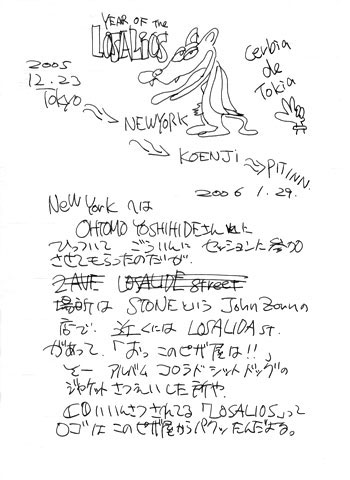 YEAR OF the
LOSALIOS
Cerbia
de
Tokia
2005
12.23
Tokyo
NEWYORK
KOENJI
PITINN.
2006 1.29.
New York へは
OHTOMO YOSHIHIDEさんに
ひっついて ごういんに セッションに参加
させてもらったのだが、
2AVE LOSALIDE street
場所は STONEという John Zornの
店で、近くには LOSALIDA ST.
があって、「おっ このピザ屋は!!」
そー アルバム コロラド シット ドッグの
ジャケット さつえいした所や
CDにいんさつされてる「LOSALIOS」って
ロゴは このピザ屋からパクッたんだよな。